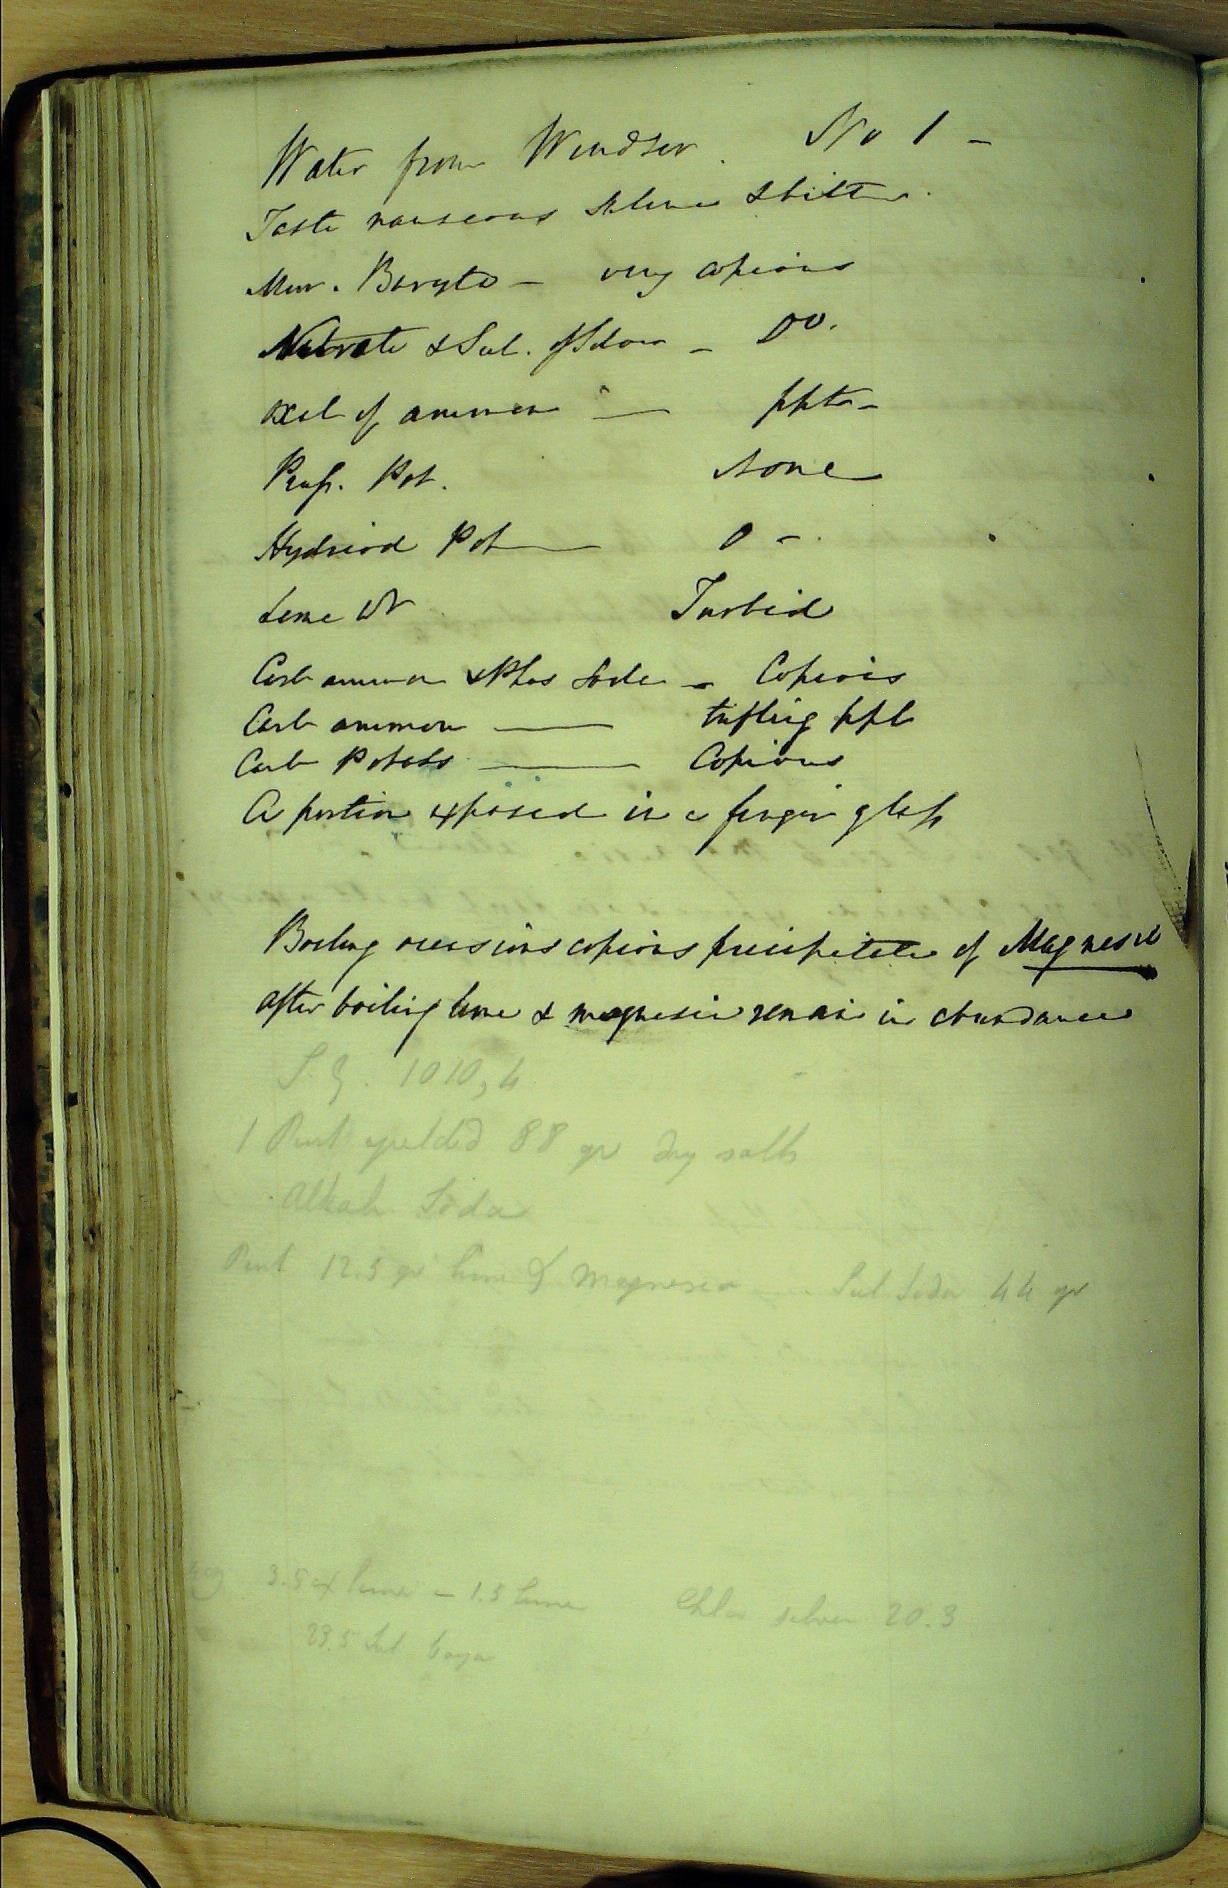 Water from Windsor. No 1 -
Taste nauseous saline & bitter.
Mur. Baryta - very copious
Nitrate & Sul. of Silver - Do.
Oxal of ammon — ppta -
Prus. Pot. None
Hydriod Pot — 0 -.
Lime W Turbid
Carb ammon & Phos Soda - Copious
Carb ammon — trifling ppt
Carb Potass — Copious
A portion exposed in a finger glass
Boiling occasions copious precipitate of Magnesia
after boiling lime & magnesia remain in abundance
S.G. 1010,4
1 Pint yielded 88 gr dry salts
Alkali Soda
Pint 12.5 gr lime & Magnesia Sul Soda 44 gr
3.5 lime - 1.5 lime Chlor silver 20.3
23.5 Sul